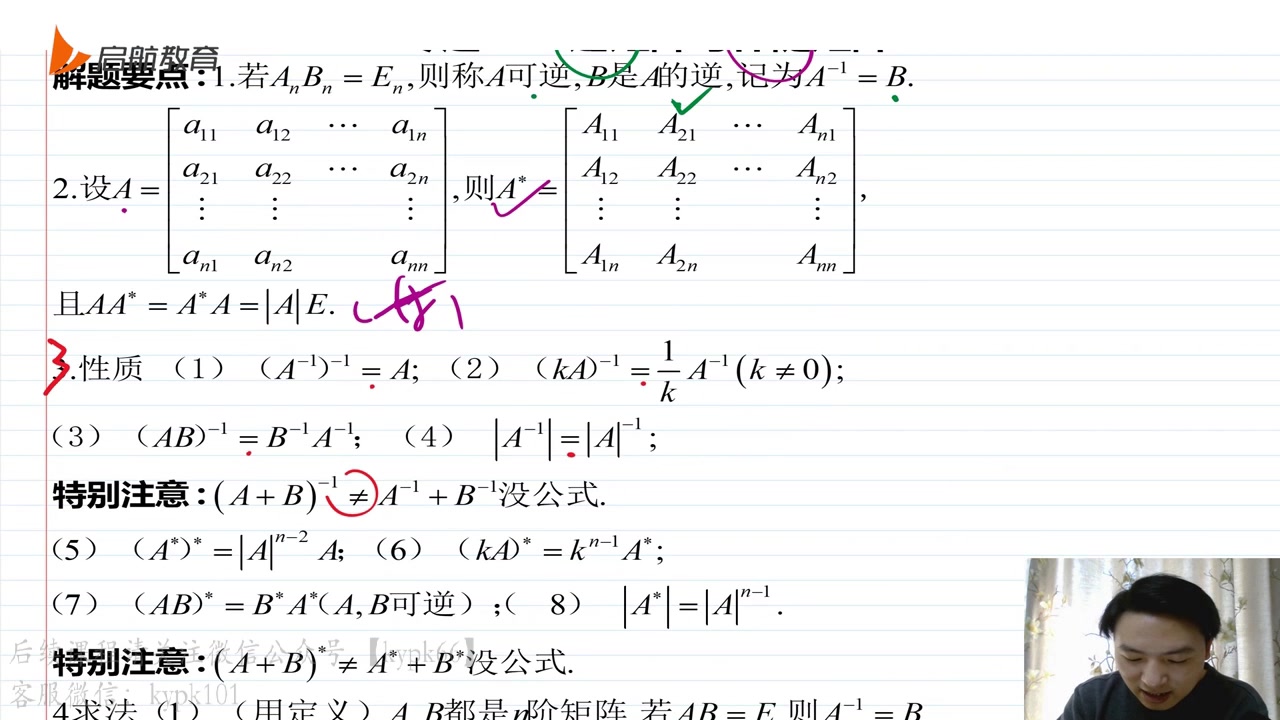 启航教育
解题要点:1.若AₙBₙ = Eₙ,则称A可逆,B是A的逆,记为A⁻¹ = B.
2.设A = [a₁₁ a₁₂ ⋯ a₁ₙ; a₂₁ a₂₂ ⋯ a₂ₙ; ⋮ ⋮ ⋮; aₙ₁ aₙ₂ aₙₙ],则A* = [A₁₁ A₂₁ ⋯ Aₙ₁; A₁₂ A₂₂ ⋯ Aₙ₂; ⋮ ⋮ ⋮; A₁ₙ A₂ₙ Aₙₙ],
且AA* = A*A = |A|E.
3.性质 （1）（A⁻¹）⁻¹ = A; （2）（kA）⁻¹ = 1/k A⁻¹(k ≠ 0);
（3）（AB）⁻¹ = B⁻¹A⁻¹; （4） |A⁻¹| = |A|⁻¹;
特别注意:(A + B)⁻¹ ≠ A⁻¹ + B⁻¹没公式.
（5）（A*）* = |A|ⁿ⁻² A;（6）（kA）* = kⁿ⁻¹A*;
（7）（AB）* = B*A*（A,B可逆）;（ 8） |A*| = |A|ⁿ⁻¹.
后续课程请关注微信公众号【kypk66】
特别注意:(A + B)* ≠ A* + B*没公式.
客服微信: kypk101
4求法（1）（用定义）A,B都是n阶矩阵,若AB = E,则A⁻¹ = B